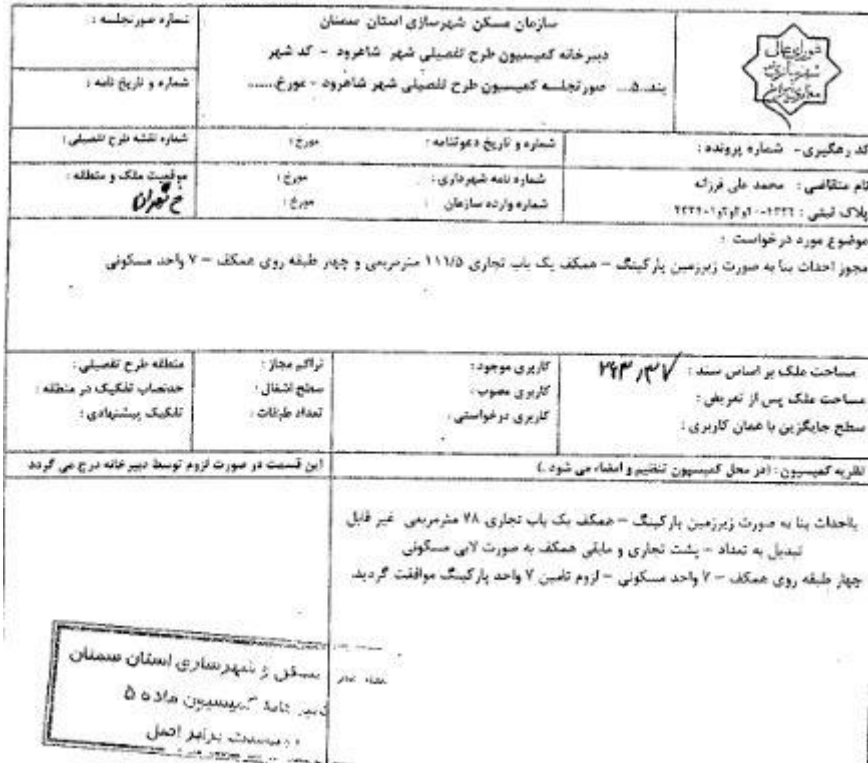 شورای عالی
شهرسازی و
معماری ایران
سازمان مسکن شهرسازی استان سمنان
دبیرخانه کمیسیون طرح تفصیلی شهر شاهرود - کد شهر
بند..۵... صورتجلسه کمیسیون طرح تفصیلی شهر شاهرود - مورخ......
شماره صورتجلسه :
شماره و تاریخ نامه :
کد رهگیری- شماره پرونده :
شماره و تاریخ دعوتنامه : مورخ :
شماره نقشه طرح تفصیلی :
نام متقاضی : محمد علی فرزانه
پلاک ثبتی :
شماره نامه شهرداری : مورخ :
شماره وارده سازمان : مورخ :
موقعیت ملک و منطقه :
خ تهران
موضوع مورد درخواست :
مجوز احداث بنا به صورت زیرزمین پارکینگ – همکف یک باب تجاری ۱۱۱/۵ مترمربعی و چهار طبقه روی همکف – ۷ واحد مسکونی
مساحت ملک بر اساس سند : ۲۶۳/۳۷
مساحت ملک پس از تعریض :
سطح جایگزین با همان کاربری :
کاربری موجود :
کاربری مصوب :
کاربری درخواستی :
تراکم مجاز :
سطح اشغال :
تعداد طبقات :
منطقه طرح تفصیلی :
حدنصاب تفکیک در منطقه :
تفکیک پیشنهادی :
نظریه کمیسیون : (در محل کمیسیون تنظیم و امضاء می شود .)
این قسمت در صورت لزوم توسط دبیر خانه درج می گردد
باحداث بنا به صورت زیرزمین پارکینگ – همکف یک باب تجاری ۷۸ مترمربعی غیر قابل
تبدیل به تعداد – پشت تجاری و مابقی همکف به صورت لابی مسکونی
چهار طبقه روی همکف – ۷ واحد مسکونی – لزوم تامین ۷ واحد پارکینگ موافقت گردید.
مسکن و شهرسازی استان سمنان
کمیسیون ماده ۵
برابر اصل